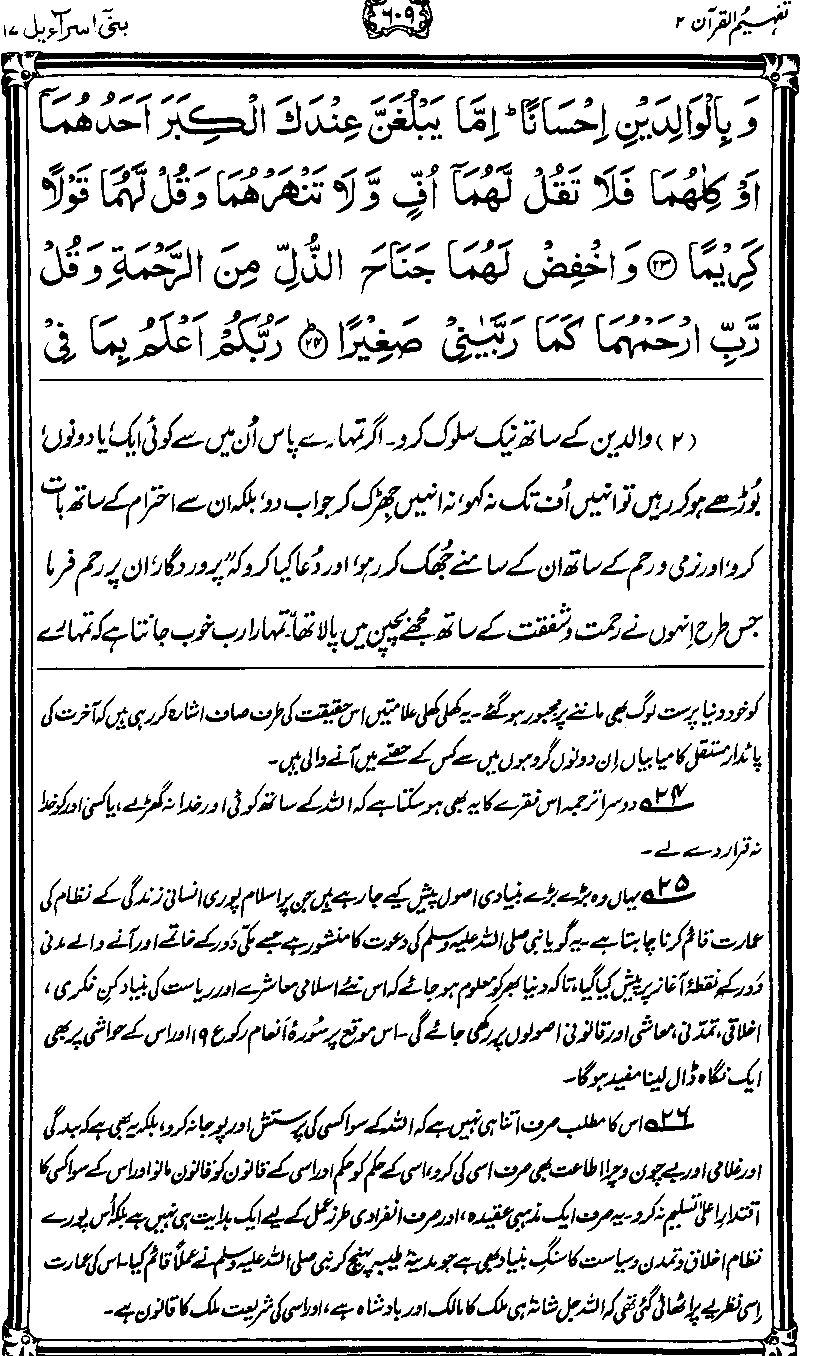 تفہیم القرآن ۲
۶۰۹
بنی اسرآءیل ۱۷
وَ بِالْوَالِدَیْنِ اِحْسَانًا ؕ اِمَّا یَبْلُغَنَّ عِنْدَكَ الْكِبَرَ اَحَدُهُمَاۤ
اَوْ كِلٰهُمَا فَلَا تَقُلْ لَّهُمَاۤ اُفٍّ وَّ لَا تَنْهَرْهُمَا وَ قُلْ لَّهُمَا قَوْلًا
كَرِیْمًا ﴿۲۳﴾ وَ اخْفِضْ لَهُمَا جَنَاحَ الذُّلِّ مِنَ الرَّحْمَةِ وَ قُلْ
رَّبِّ ارْحَمْهُمَا كَمَا رَبَّیٰنِیْ صَغِیْرًا ﴿ؕ۲۴﴾ رَبُّكُمْ اَعْلَمُ بِمَا فِیْ
(۲) والدین کے ساتھ نیک سلوک کرو۔ اگر تمہارے پاس اُن میں سے کوئی ایک، یا دونوں،
بُوڑھے ہو کر رہیں تو انہیں اُف تک نہ کہو، نہ انہیں جِھڑک کر جواب دو، بلکہ ان سے احترام کے ساتھ بات
کرو، اور نرمی و رحم کے ساتھ ان کے سامنے جُھک کر رہو، اور دُعا کیا کرو کہ ”پروردگار، ان پر رحم فرما
جس طرح اِنہوں نے رحمت و شفقت کے ساتھ مجھے بچپن میں پالا تھا“۔ تمہارا رب خوب جانتا ہے کہ تمہارے
کو خود دنیا پرست لوگ بھی ماننے پر مجبور ہو گئے۔ یہ کھلی کھلی علامتیں اس حقیقت کی طرف صاف اشارہ کر رہی ہیں کہ آخرت کی
پائدار مستقل کامیابیاں اِن دونوں گروہوں میں سے کس کے حصّے میں آنے والی ہیں۔
۲۴ دوسرا ترجمہ اس فقرے کا یہ بھی ہو سکتا ہے کہ اللہ کے ساتھ کوئی اور خدا نہ گھڑ لے، یا کسی اور کو خدا
نہ قرار دے لے۔
۲۵ یہاں وہ بڑے بڑے بنیادی اصول پیش کیے جا رہے ہیں جن پر اسلام پوری انسانی زندگی کے نظام کی
عمارت قائم کرنا چاہتا ہے۔ یہ گویا نبی صلی اللہ علیہ وسلم کی دعوت کا منشور ہے جسے مکّی دَور کے خاتمے اور آنے والے مدنی
دَور کے نقطۂ آغاز پر پیش کیا گیا، تاکہ دنیا بھر کو معلوم ہو جائے کہ اس نئے اسلامی معاشرے اور ریاست کی بنیاد کن فکری،
اخلاقی، تمدّنی، معاشی اور قانونی اصولوں پر رکھی جائے گی۔ اس موقع پر سُورۂ اَنعام رکوع ۱۹ اور اس کے حواشی پر بھی
ایک نگاہ ڈال لینا مفید ہو گا۔
۲۶ اس کا مطلب صرف اتنا ہی نہیں ہے کہ اللہ کے سوا کسی کی پرستش اور پوجا نہ کرو، بلکہ یہ بھی ہے کہ بندگی
اور غلامی اور بے چون و چرا اطاعت بھی صرف اسی کی کرو، اسی کے حکم کو حکم اور اسی کے قانون کو قانون مانو اور اس کے سوا کسی کا
اقتدارِ اعلیٰ تسلیم نہ کرو۔ یہ صرف ایک مذہبی عقیدہ، اور صرف انفرادی طرزِ عمل کے لیے ایک ہدایت ہی نہیں ہے بلکہ اُس پورے
نظام اخلاق و تمدن و سیاست کا سنگِ بنیاد بھی ہے جو مدینۂ طیبہ پہنچ کر نبی صلی اللہ علیہ وسلم نے عملاً قائم کیا۔ اس کی عمارت
اِسی نظریے پر اٹھائی گئی تھی کہ اللہ جل شانہٗ ہی ملک کا مالک اور بادشاہ ہے، اور اسی کی شریعت ملک کا قانون ہے۔